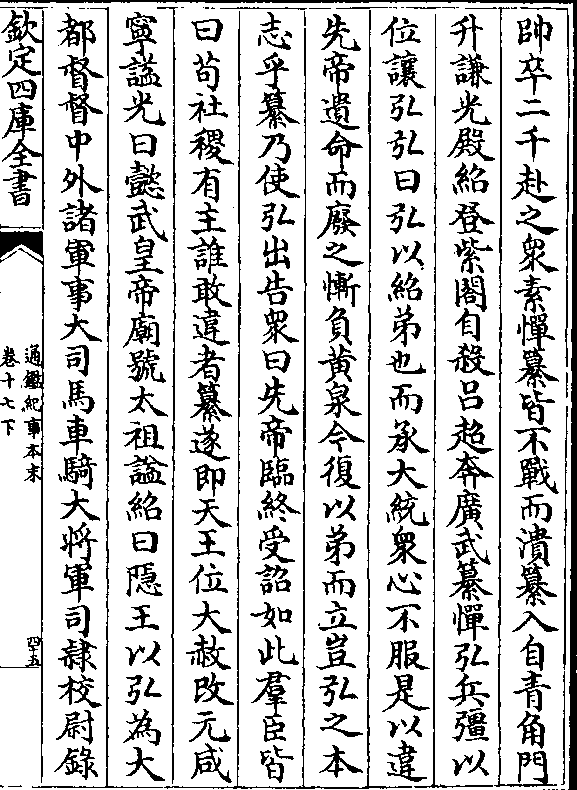 帥卒二千赴之衆素憚纂皆不戰而潰纂入自青角門
升謙光殿紹登紫閣自殺吕超奔廣武纂憚弘兵彊以
位讓弘弘曰弘以紹弟也而承大統衆心不服是以違
先帝遺命而廢之慚負黄泉今復以弟而立豈弘之本
志乎纂乃使弘出告衆曰先帝臨終受詔如此羣臣皆
曰苟社稷有主誰敢違者纂遂即天王位大赦改元咸
寧諡光曰懿武皇帝廟號太祖諡紹曰隱王以弘為大
都督督中外諸軍事大司馬車騎大將軍司隷校尉錄
欽定四庫全書
通鑑紀事本末
卷十七下
四十五